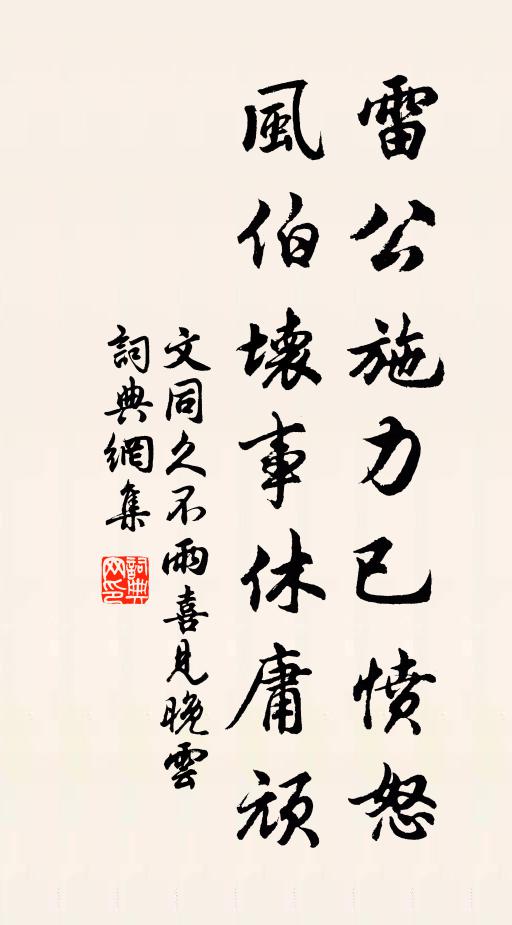 雷公施力已憤怒
風伯壞事休庸頑
文同久不雨喜見晚雲
詞典網集
詞典網印